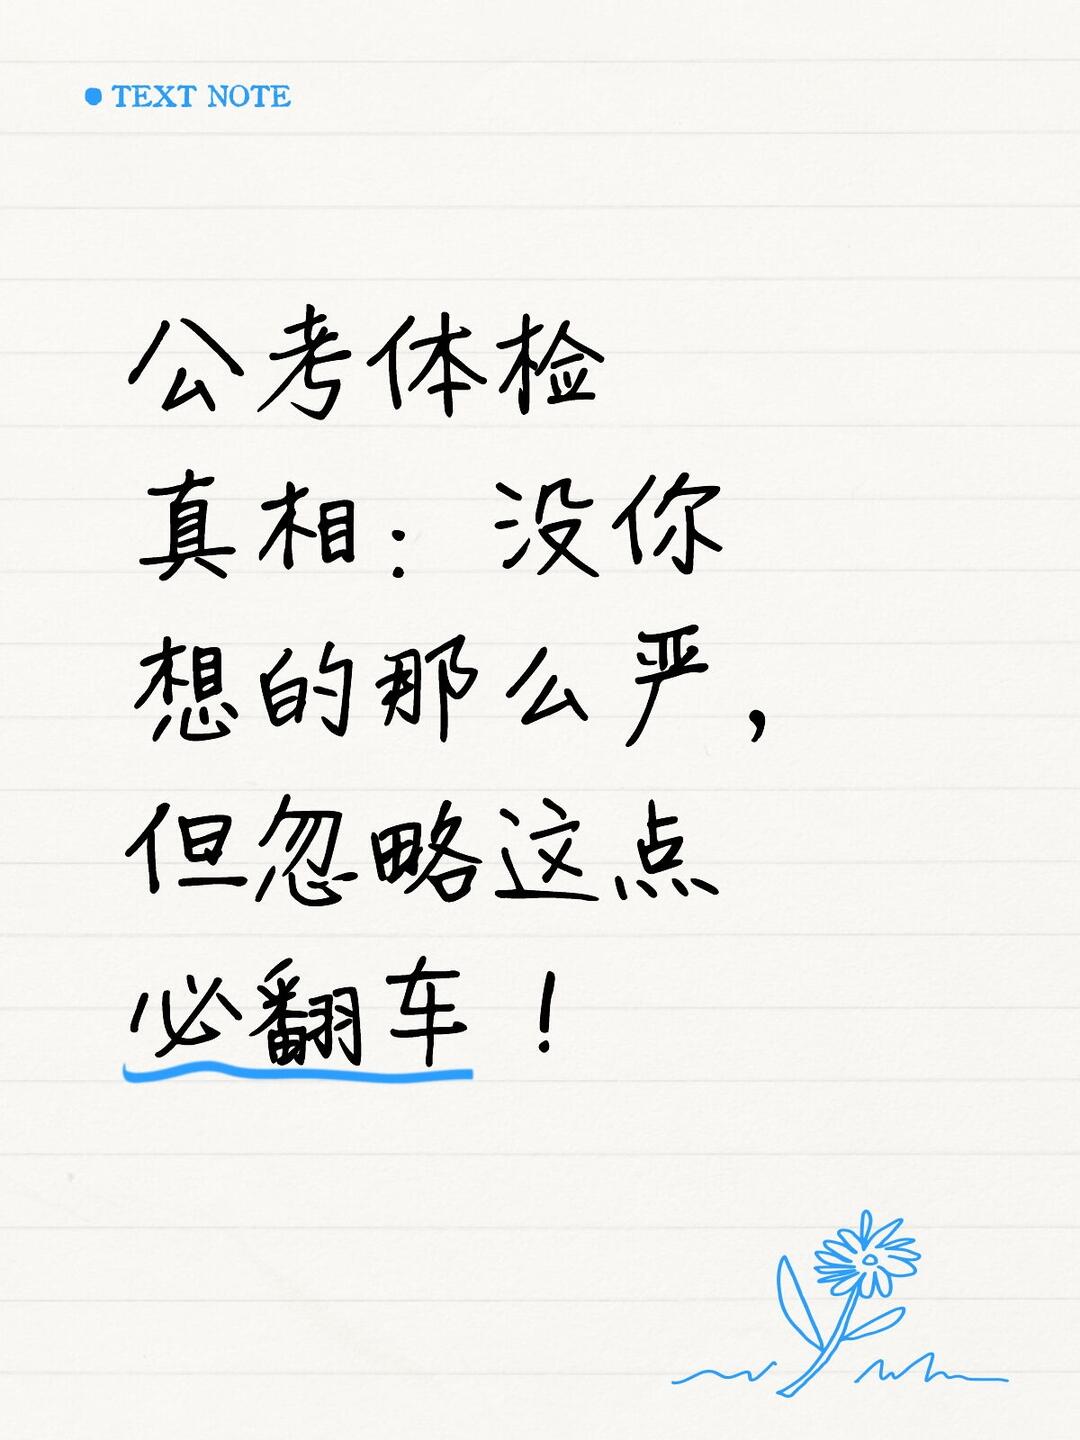 TEXT NOTE
公考体检
真相：没你
想的那么严，
但忽略这点
必翻车！